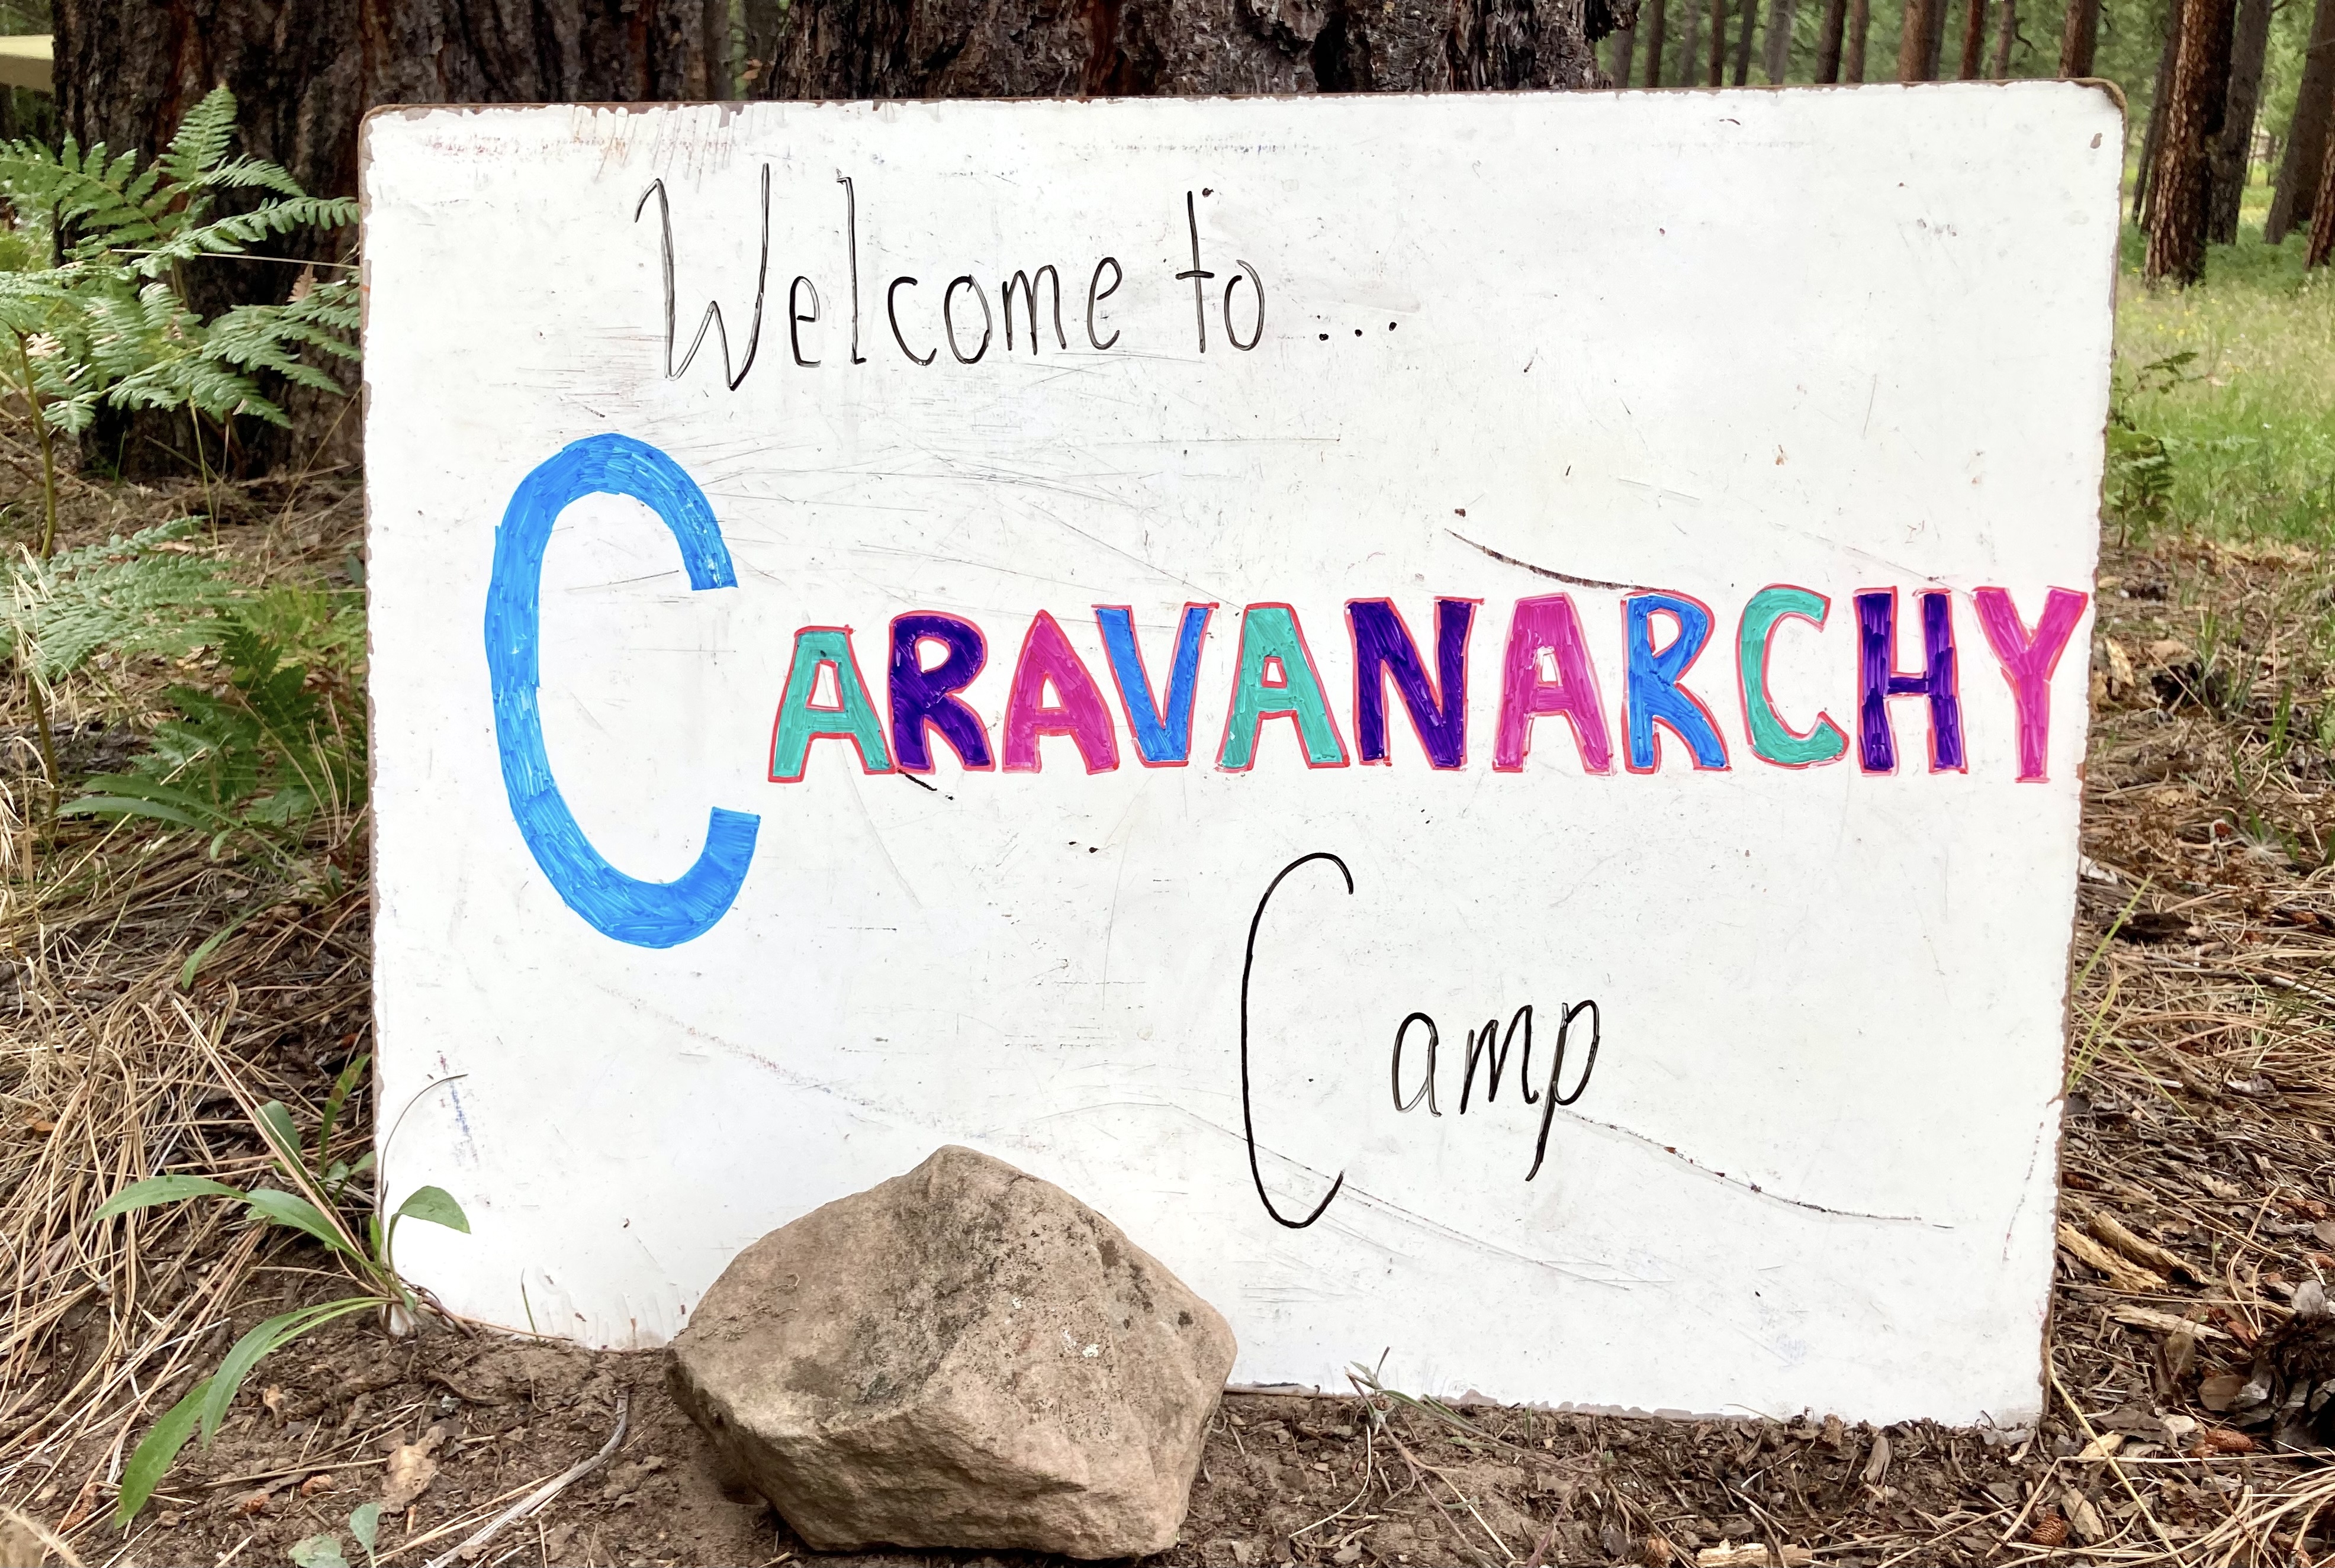 Welcome to...
CARAVANARCHY
Camp